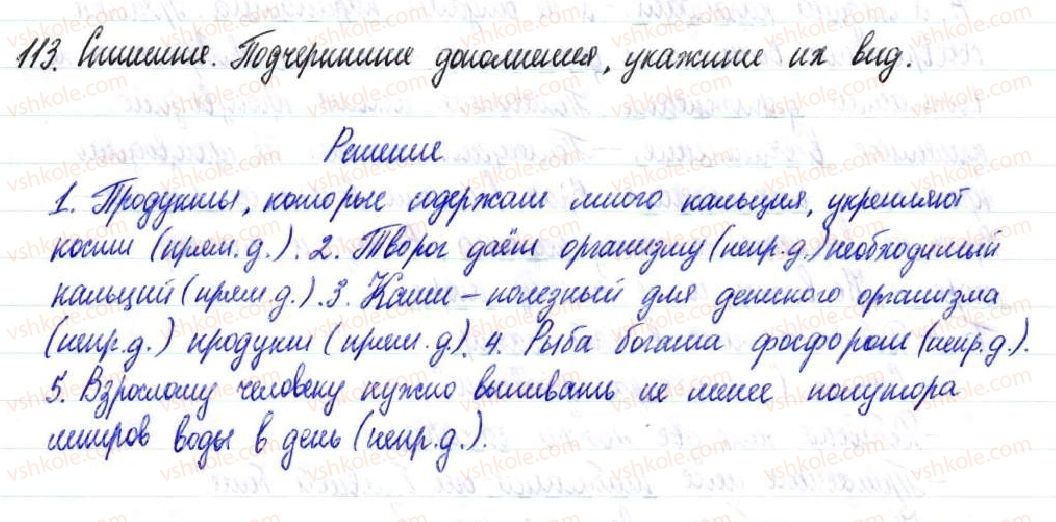 113. Спишите. Подчеркните дополнения, укажите их вид.
Решение
1. Продукты, которые содержат много кальция, укрепляют
кости (прям. д.). 2. Творог даёт организму (непр. д.) необходимый
кальций (прям. д.). 3. Каши – полезный для детского организма
(непр. д.) продукт (прям. д.). 4. Рыба богата фосфором (непр. д.).
5. Взрослому человеку нужно выпивать не менее полутора
литров воды в день (непр. д.).